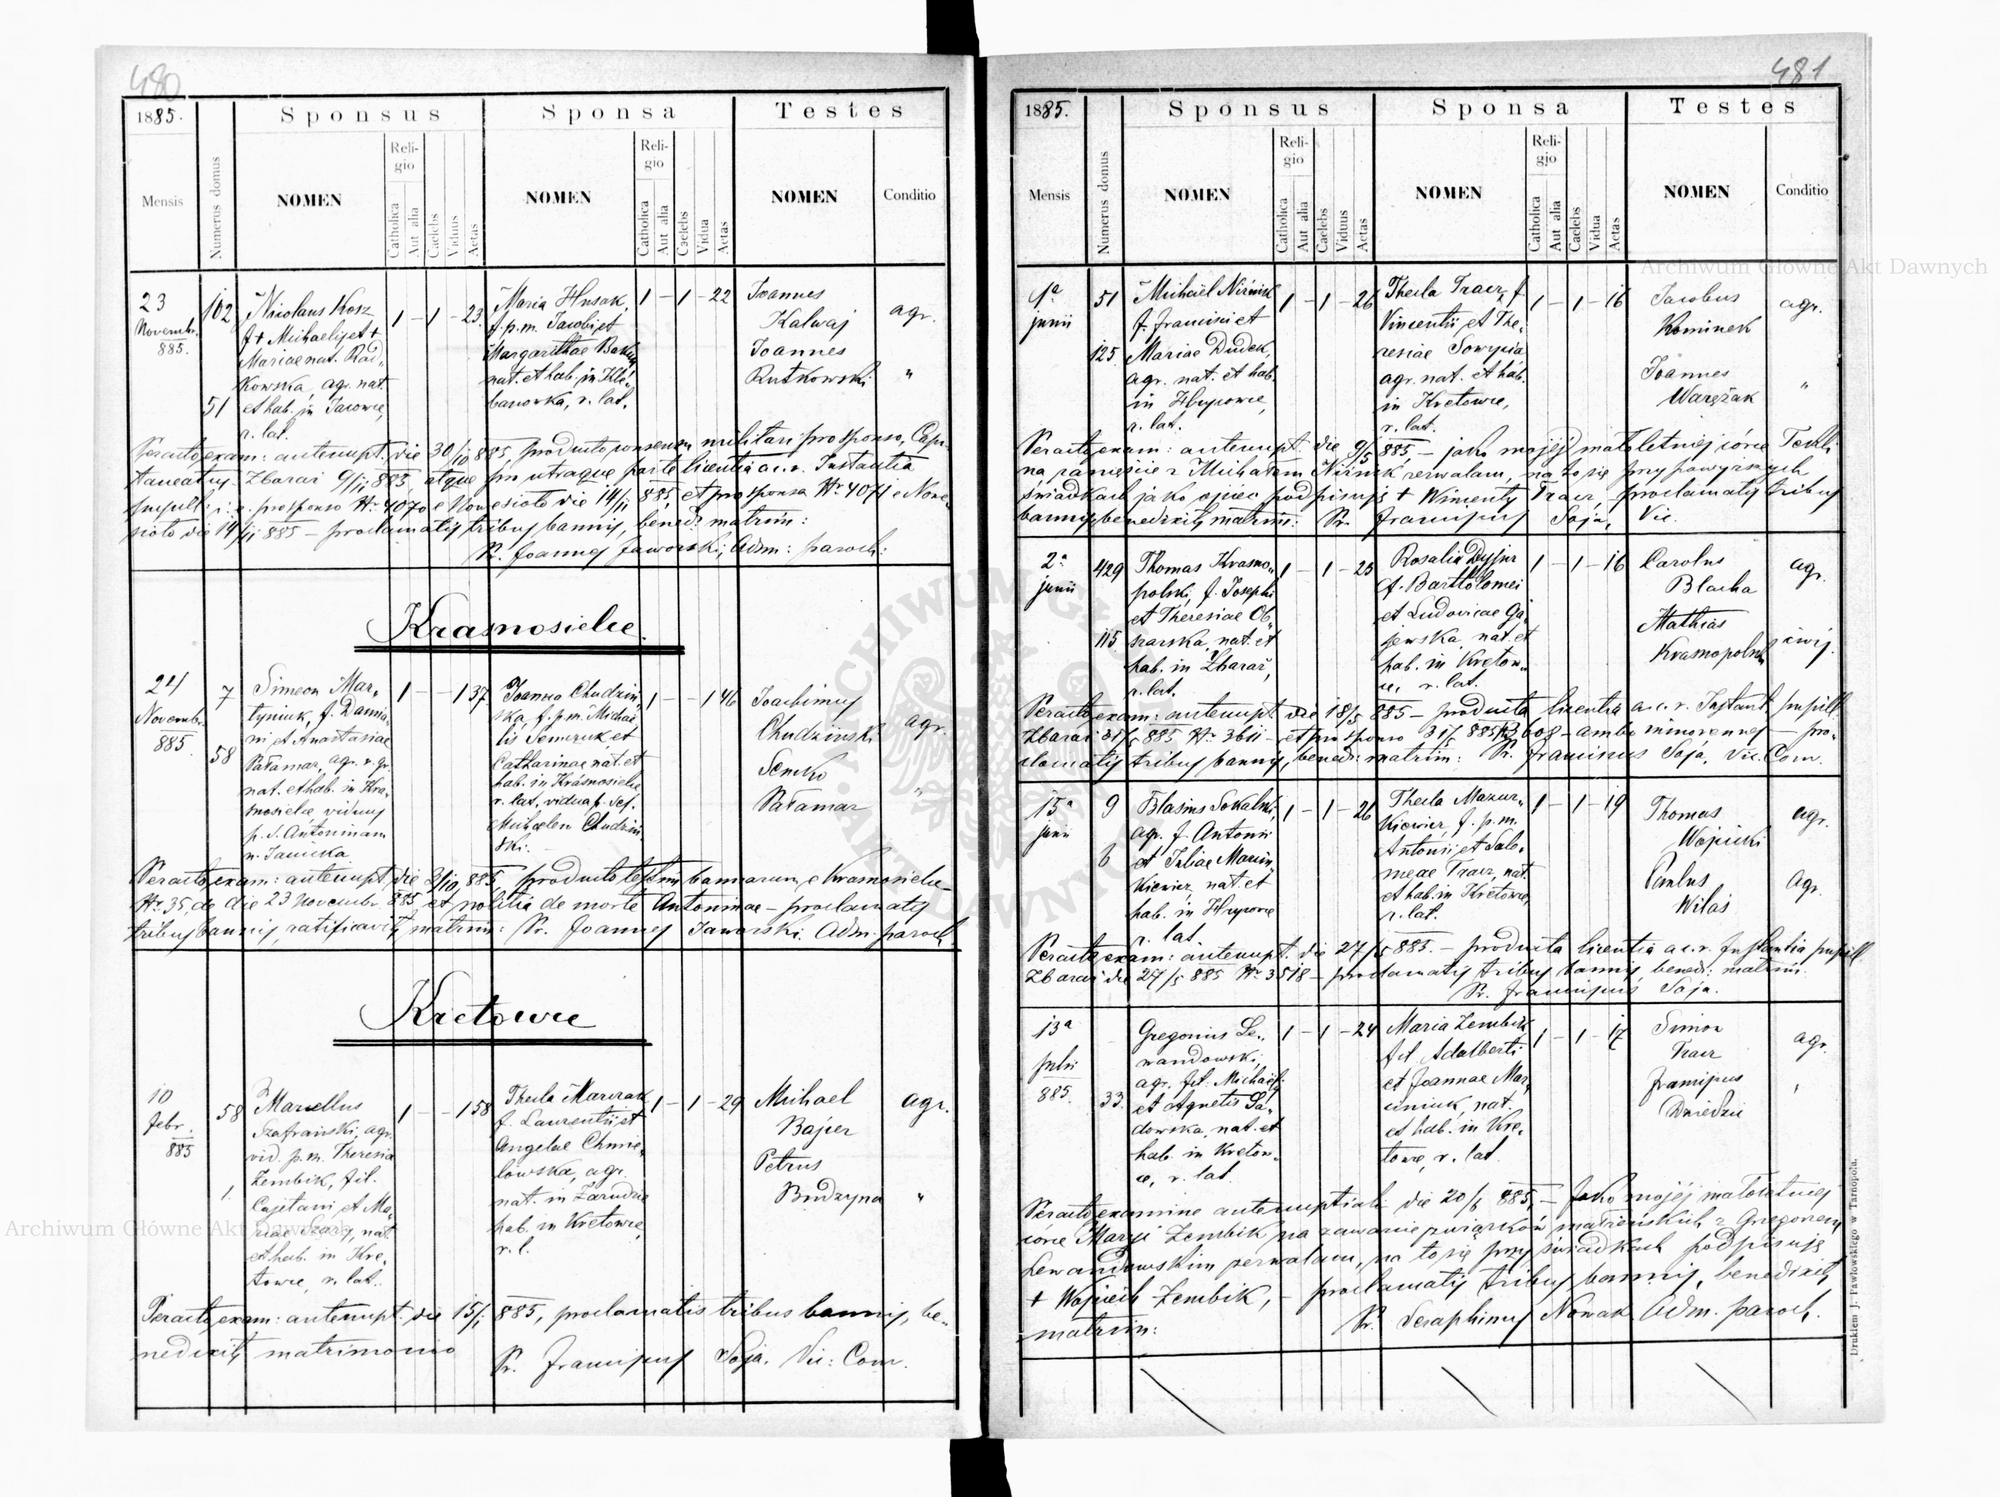 480
1885.
Sponsus
Sponsa
Testes
Mensis
Numerus domus
NOMEN
Religio
Catholica
Aut alia
Caelebs
Viduus
Aetas
NOMEN
Religio
Catholica
Aut alia
Caelebs
Vidua
Aetas
NOMEN
Conditio
23
Novembr.
885.
102
51
Nicolaus Kosz
f + Michaelis et +
Mariae nat. Rad-
kowska, agr. nat.
et hab. in Jacowce,
r. lat.
1 – 1 – 23
Maria Husak,
f. p. m. Jacobi et
Margarithae
nat. et hab. in Kle-
banowka, r. lat.
1 – 1 – 22
Joannes
Kalwaj
Joannes
Rutkowski
agr.
"
Peracto exam: antenupt. die 30/10 885, producto consensu militari pro sponso,
Zbaraż 9/11 885, atque pro utraque parte licentia a. c. r. Instantia
pupill: i: e. pro sponso Nr. 4070 e Nowesioło die 14/11 885, et pro sponsa Nr. 4071 e Nowe-
sioło die 14/11 885 – proclamatis tribus bannis, bened. matrim:
Pr. Joannes Jaworski, Adm: paroch:
Krasnosielce.
24
Novembr.
885.
7
58
Simeon Mar-
tyniuk, f. Damia-
ni et Anastasiae
Pałamar, agr. r. gr.
nat. et hab. in Kra-
snosielce, viduus
p. d. Antoninam
n. Janicka
1 – – 1 37
Joanna Chudziń-
ska, f. p. m. Michae-
lis Semczuk et
Catharinae nat. et
hab. in Krasnosielce
r. lat, vidua p. def.
Michaelem Chudziń-
ski.
1 – – 1 46
Joachimus
Chudziński
Semko
Pałamar
agr.
"
Peracto exam: antenupt. die 2/10 885, producto testim bannorum e Krasnosielce
Nr. 35, de die 23 Novembr. 885 et notitia de morte Antoninae – proclamatis
tribus bannis, ratificavit matrim: Pr. Joannes Jaworski. Adm. paroch
Kretowce
10
febr.
885
58
1.
Marcellus
Szafrański, agr.
vid. p. m. Theresia
Zembik, fil.
Cajetani et Ma-
riae Szary, nat.
et hab. in Kre-
towce, r. lat.
1 – – 1 58
Thecla Marczak
f. Laurentii et
Angelae Chmie-
lowska, agr.
nat. in Zarudzie
hab. in Kretowce,
r. l.
1 – 1 – 29
Michael
Bajcer
Petrus
Budzyna
agr.
"
Peracto exam: antenupt. die 15/1 885, proclamatis tribus bannis, be-
nedixit matrimonio
Pr. Franciscus Soja. Vic: Coop.
481
1885.
Sponsus
Sponsa
Testes
Mensis
Numerus domus
NOMEN
Religio
Catholica
Aut alia
Caelebs
Viduus
Aetas
NOMEN
Religio
Catholica
Aut alia
Caelebs
Vidua
Aetas
NOMEN
Conditio
1a
junii
51
125
Michaël
f. Francisci et
Mariae Dudek,
agr. nat. et hab.
in Hrycowce,
r. lat.
1 – 1 – 26
Thecla Tracz, f
Vincentii et The-
resiae Sowycia
agr. nat. et hab.
in Kretowce,
r. lat.
1 – 1 – 16
Jacobus
Kominek
Joannes
Warężak
agr.
"
Peracto exam: antenupt. die 9/5 885, – jako mojej małoletniej córce Tekli
na zamęście z Michałem zezwalam, na to się przy powyższych
świadkach jako ojciec podpisuję + Wincenty Tracz, – proclamatis tribus
bannis, benedixit matrim: Pr. Franciscus Soja, Vic.
2a
junii
429
115
Thomas Krasno-
polski, f. Josephi
et Theresiae Ob-
szarska, nat. et
hab. in Zbaraż,
r. lat.
1 – 1 – 23
Rosalia
f. Bartholomei
et Ludovicae Ga-
jewska, nat. et
hab. in Kretow-
ce, r. lat.
1 – 1 – 16
Carolus
Blacha
Mathias
Krasnopolski
agr.
Peracto exam: antenupt. die 18/5 885 – producta licentia a. c. r. Instant. pupill
Zbaraż 31/5 885 Nr. 3611 – et pro sponso 31/5 885 Nr. 3608 – ambo minorennes – pro-
clamatis tribus bannis, bened: matrim: Pr. Franciscus Soja, Vic. Coop.
15a
junii
9
6
Blasius Sokalski,
agr. f. Antonii
et Juliae Marcin-
kiewicz, nat. et
hab. in Hrycowce
r. lat.
1 – 1 – 26
Thecla Mazur-
kiewicz, f. p. m.
Antonii et Salo-
meae Tracz, nat.
et hab. in Kretowce,
r. lat.
1 – 1 – 19
Thomas
Wojcicki
Paulus
Witaś
agr.
agr.
Peracto exam: antenupt. die 27/5 885. – producta licentia a. c. r. Instantia pupill
Zbaraż die 27/5 885 Nr. 3518 – proclamatis tribus bannis, bened: matrim.
Pr. Franciscus Soja.
13a
julii
885.
33.
Gregorius Le-
wandowski,
agr. fil. Michaël
et Agnetis Sa-
dowska, nat. et
hab. in Kretow-
ce, r. lat.
1 – 1 – 24
Maria Zembik
fil. Adalberti
et Joannae Mar-
ciniuk, nat.
et hab. in Kre-
towce, r. lat.
1 – 1 – 17
Simon
Tracz
Franciscus
Dziedzic
agr.
"
Peracto examine antenuptiali die 20/6 885, – Jako mojéj małoletniej
córce Maryi Zembik na zawarcie związków małżeńskich z Gregorem
Lewandowskim zezwalam, na to się przy świadkach podpisuję
+ Wojciech Zembik, – proclamatis tribus bannis, benedixit
matrim:
Pr. Seraphinus Nowak Adm. paroch.
Drukiem J. Pawłowskiego w Tarnopolu.
Archiwum Główne Akt Dawnych
Archiwum Główne Akt Dawnych
ARCHIWUM GŁÓWNE AKT DAWNYCH